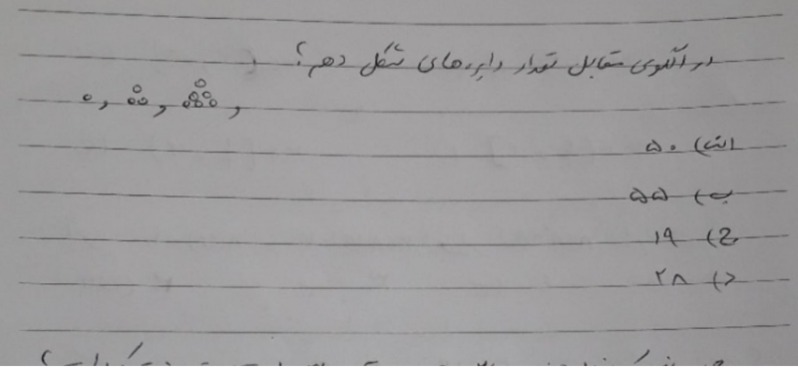 در الگوی مقابل تعداد دایره‌های شکل دهم؟
الف) ۵۰
ب) ۵۵
ج) ۱۹
د) ۲۸